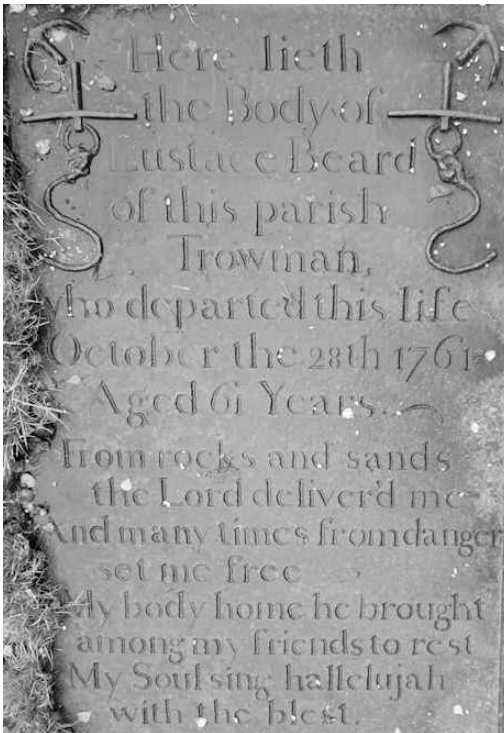 Here lieth
the Body of
Eustace Beard
of this parish
Trowman,
who departed this life
October the 28th 1761
Aged 61 Years.
From rocks and sands
the Lord deliver'd me
And many times from danger
set me free
My body home he brought
among my friends to rest
My Soul sing hallelujah
with the blest.